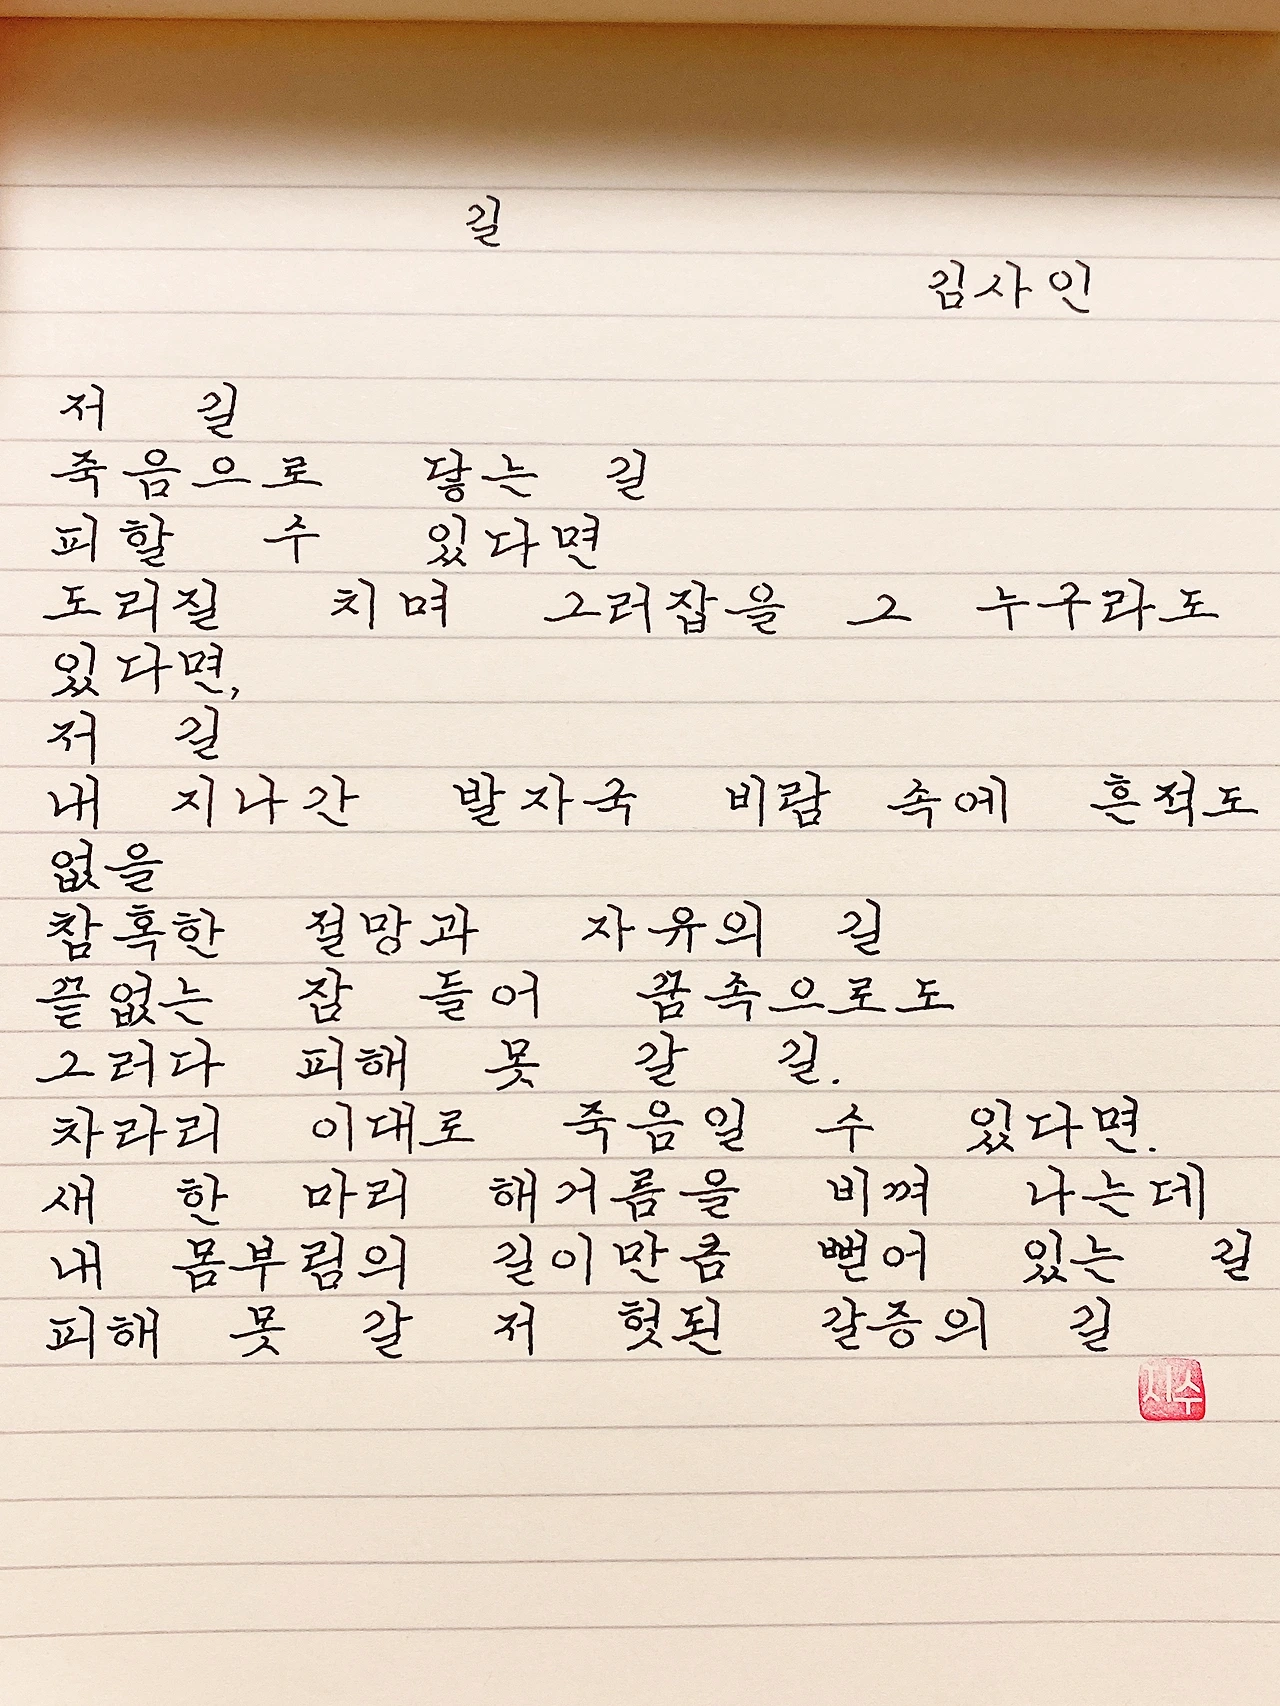 길
김사인
저 길
죽음으로 닿는 길
피할 수 있다면
도리질 치며 그러잡을 그 누구라도
있다면,
저 길
내 지나간 발자국 비람 속에 흔적도
없을
참혹한 절망과 자유의 길
끝없는 잠 들어 꿈속으로도
그러다 피해 못 갈 길.
차라리 이대로 죽음일 수 있다면.
새 한 마리 해거름을 비껴 나는데
내 몸부림의 길이만큼 뻗어 있는 길
피해 못 갈 저 헛된 갈증의 길
지수